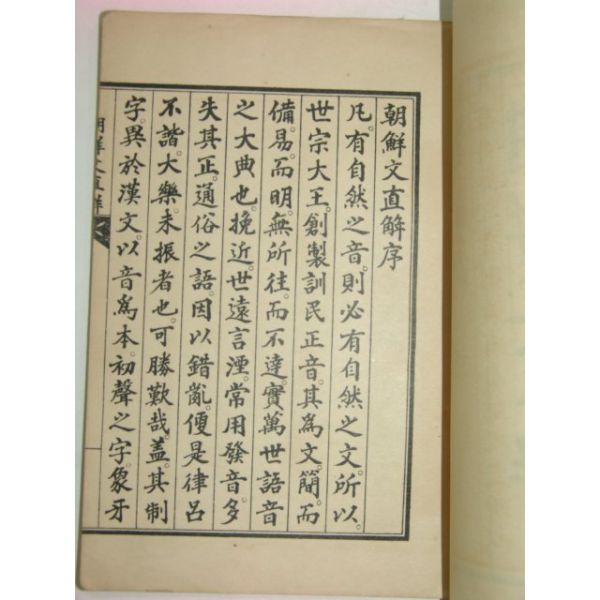 朝鮮文直解序
凡。有自然之音。則必有自然之文。所以。
世宗大王。創製訓民正音。其爲文。簡。而
備。易。而明。無所往。而不達。實萬世語音
之大典也。挽近。世遠言湮。常用發音。多
失其正。通俗之語。因以錯亂。便是律呂
不諧。大樂。未振者也。可勝歎哉。盖。其制
字。異於漢文。以音爲本。初聲之字。象牙
朝鮮文直解
一